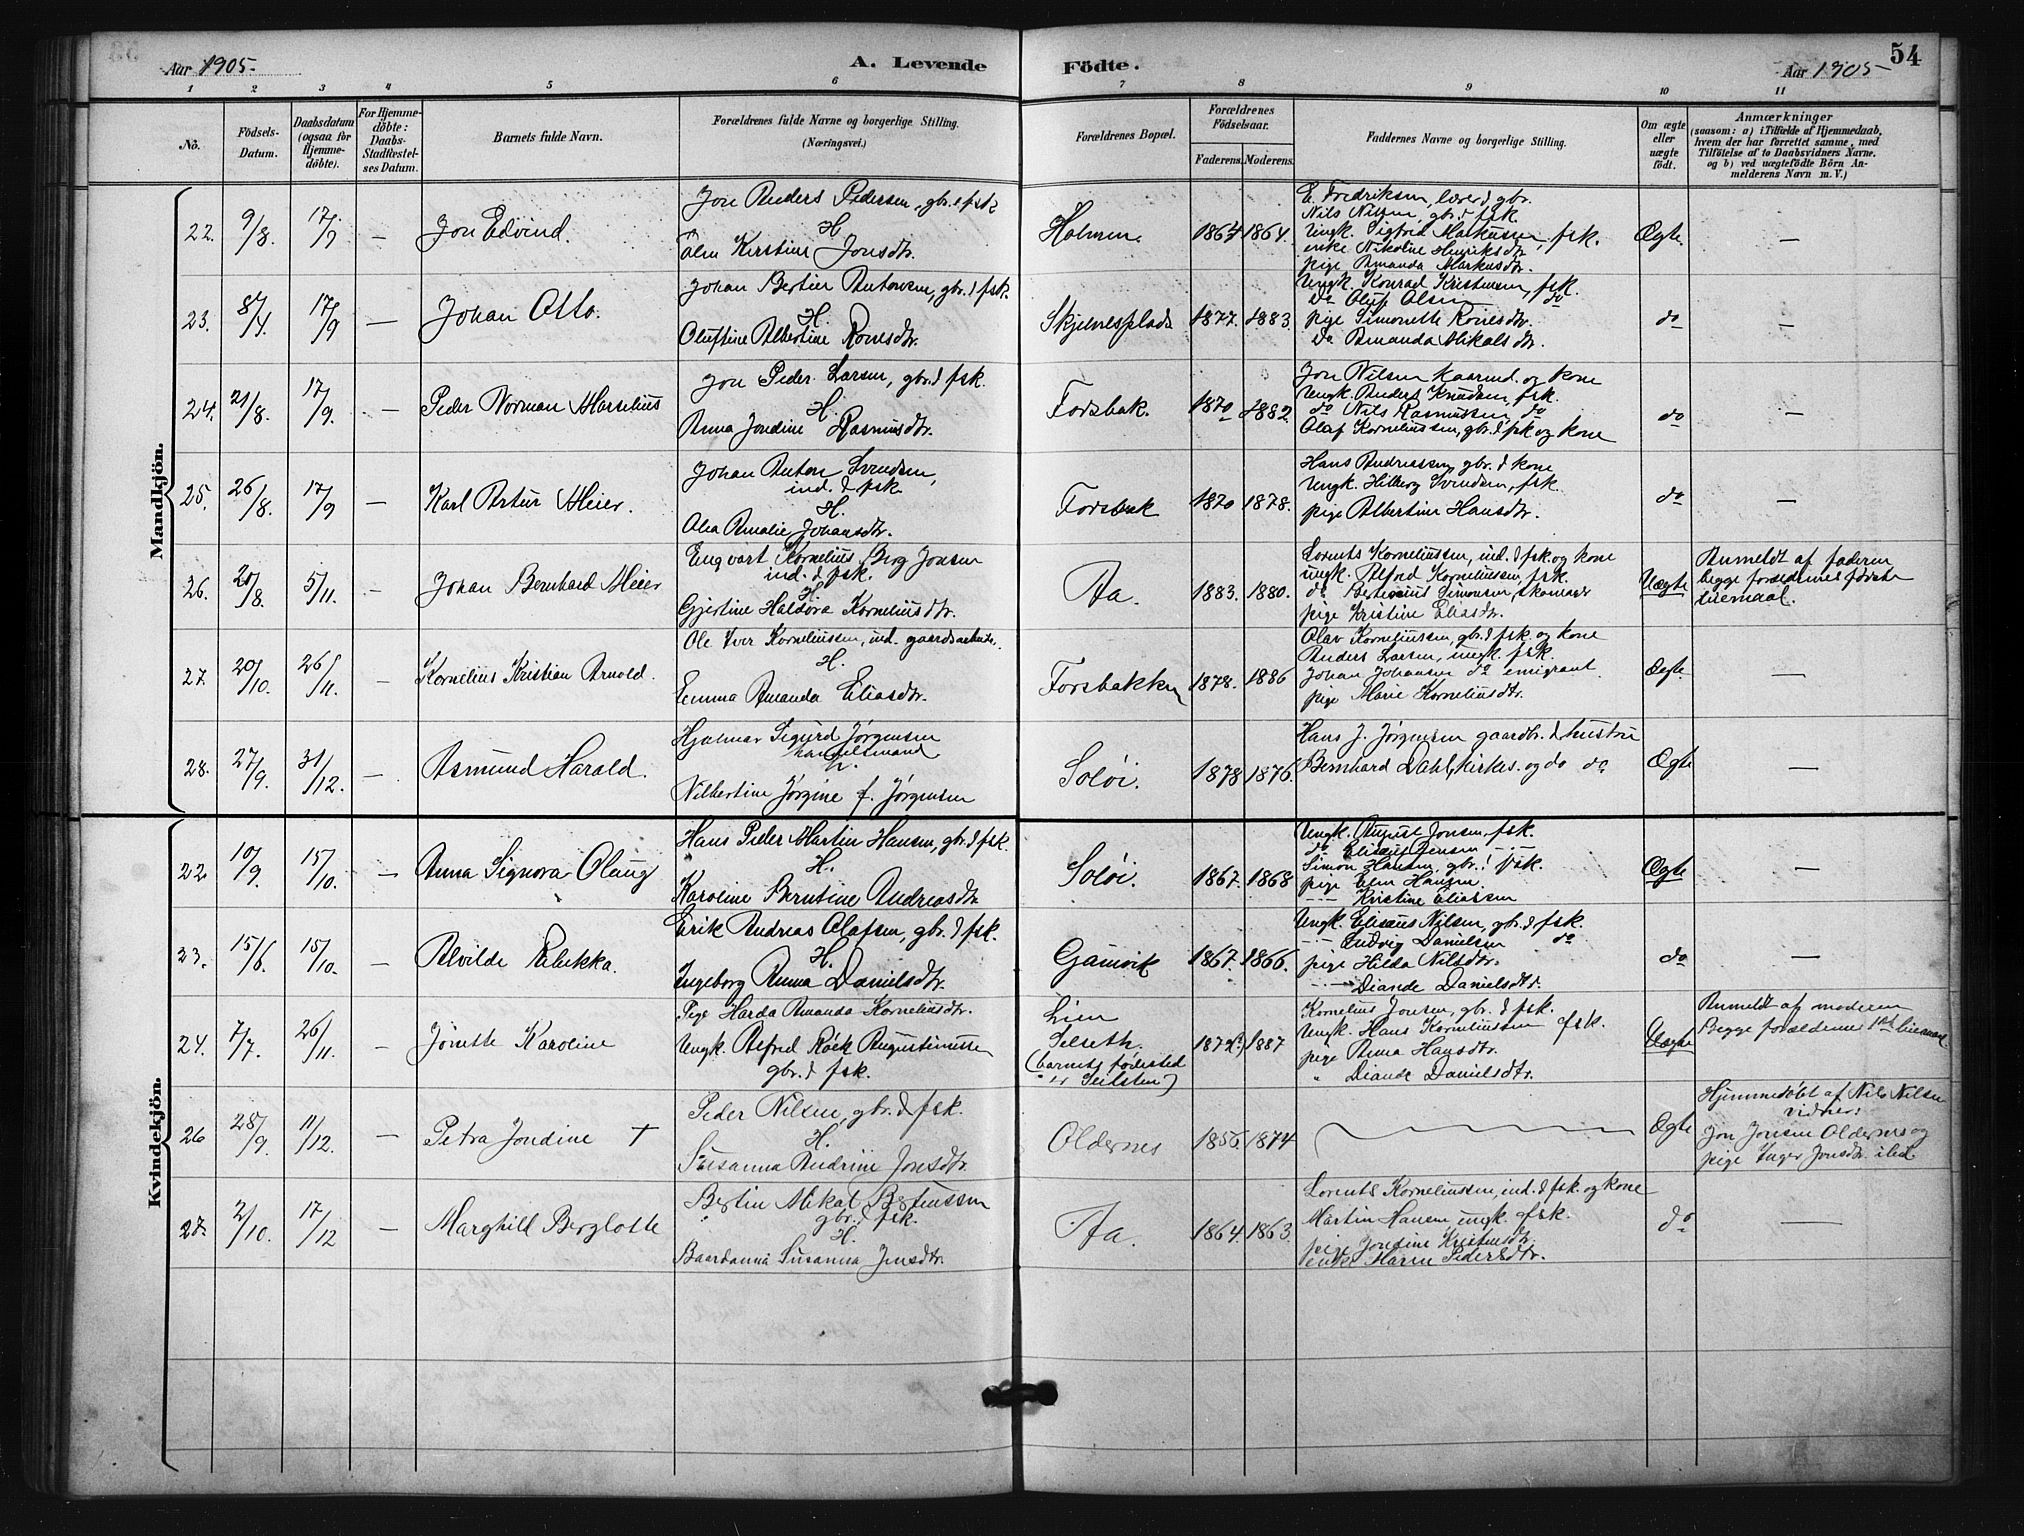 Aar 1905.
A. Levende
Fødte.
Aar 1905
54
1 2 3 4 5 6 7 8 9 10 11
No.
Fødsels-
Datum.
Daabsdatum
(ogsaa for
Hjemme-
døbte).
For Hjemme-
døbte:
Daabs-
Stadfæstel-
ses Datum.
Barnets fulde Navn.
Forældrenes fulde Navne og borgerlige Stilling.
(Næringsvei.)
Forældrenes Bopæl.
Forældrenes
Fødselsaar.
Faderens.
Moderens.
Faddernes Navne og borgerlige Stilling.
Om ægte
eller
uægte
født.
Anmærkninger
(saasom: a) i Tilfælde af Hjemmedaab,
hvem der har forrettet samme, med
Tilføielse af to Daabsvidners Navne.
og b) ved uægtefødte Børn An-
melderens Navn m. V.)
Mandkjön.
22.
9/8.
17/9
—
Jon Edvind.
Jon Anders Pedersen, gbr. & fsk
H
Kirstine Jonsdtr.
Holmen
1864
1864.
E. Fredriksen, lærer & gbr.
Nils Nilsen, gbr. & fsk.
Ungk. Sigfrid Markussen, fsk.
enke Nikoline Henriksdtr
pige Amanda Markusdtr.
Ægte.
—
23.
8/4.
17/9
—
Johan Otto.
Johan Bertin Antonsen, gbr. & fsk.
H.
Oluftine Albertine
Skjelnesplads
1877.
1883.
Ungk. Konrad Kristensen, fsk.
Do Oluf Olsen do
pige Simonette
Do Amanda Mikalsdtr.
do
—
24.
21/8.
17/9.
—
Peder Norman Marselius
Jon Peder Larsen, gbr. & fsk.
H.
Anna Jondine Rasmusdtr.
Forsbak.
1870
1882.
Jon Nilsen kaarmd. og kone
Ungk. Anders Knudsen, fsk.
do Nils Rasmussen do
Olaf Korneliussen, gbr. & fsk og kone
do
—
25.
26/8.
17/9
—
Karl Artur Meier.
Johan Anton Svendsen,
ind. & fsk.
H.
Olea Amalie Johansdtr.
Forsbak
1870
1878.
Hans Andreassen gbr. & kone
Ungk. Hilberg Svendsen, fsk.
pige Albertine Hansdtr.
do
—
26.
20/8.
5/11.
—
Johan Bernhard Meier
Engvart Kornelius Berg Jonsen
ind. & fsk.
H.
Gjertine Haldora Korneliusdtr.
Aa.
1883.
1880.
Lorents Korneliussen, ind. & fsk. og kone
ungk. Alfred Korneliussen, fsk.
do Simonsen, skomager
pige Kristine Eliasdtr.
Uægte
Anmeldt af faderen
begge forældrenes første
leiermaal.
27.
20/10.
26/11.
—
Kornelius Kristian Arnold.
Ole Iver Korneliussen, ind. gaardsarbeider.
H.
Emma Amanda Eliasdtr.
Forsbakken
1878.
1886
Olav Korneliussen, gbr. & fsk. og kone
Anders Larsen, ungk. fsk.
Johan Johansen do emigrant
pige Marie Korneliusdtr.
Ægte.
—
28.
27/9.
31/12.
—
Asmund Harald.
Hjalmar Sigurd Jørgensen
handelsmand.
H.
Nilbertine Jørgine f. Jørgensen
Soløi.
1878
1876.
Hans J. Jørgensen gaardbr. & hustru
Bernhard Dahl, kirkes. og do do
Ægte
—
Kvindekjön.
22
10/9.
15/10.
—
Anna Signora Olaug
Hans Peder Martin Hansen, gbr. & fsk.
H.
Karoline Berntine Andreasdtr.
Soløi.
1867.
1868
Ungk. August Jonsen, fsk.
do Eliseus Jensen
Simon Hansen, gbr. & fsk.
pige Hansen.
Kristine Eliassen
Ægte
—
23.
15/6.
15/10.
—
Alvilde Rebekka.
Erik Andreas Olafsen, gbr. & fsk.
H.
Ingeborg Anna Danielsdtr.
Gamvik
1867.
1866.
Ungk. Eliseus Nilsen, gbr. & fsk.
Ludvig Danielsen do
pige Hilda Nilsdtr.
Diande Danielsdtr.
do
—
24.
7/7.
26/11.
—
Jonette Karoline
Pige Harda Amanda Korneliusdtr.
Ungk. Alfred Røck Augustinussen
gbr. & fsk.
Lien
Selseth.
(barnets fødested
er
1872(?)
1887
Kornelius Jonsen, gbr. & fsk.
Ungk. Hans Korneliussen fsk.
pige Anna Hansdtr.
" Diande Danielsdtr.
Uægte
Anmeldt af moderen
Begge forældrenes 1ste leiermaal.
26
25/9.
11/12.
—
Petra Jondine +
Peder Nilsen, gbr. & fsk.
H.
Susanna Andrine Jonsdtr.
Oldernes
1856
1874
Ægte
Hjemmedøbt af Nils Nilsen
vidner:
Jon Jonsen Oldernes og
pige Inger Jonsdtr. ibd.
27.
2/10.
17/12
—
Marghild Berglotte
Bertin Mikal Berteussen
gbr. & fsk.
H.
Baardanna Susanna Jensdtr.
Aa.
1864.
1863.
Lorents Korneliussen, ind. & fsk. og kone
Martin Hansen ungk. fsk.
pige Jondine Kristensdtr.
enke Karen Pedersdtr.
do
—